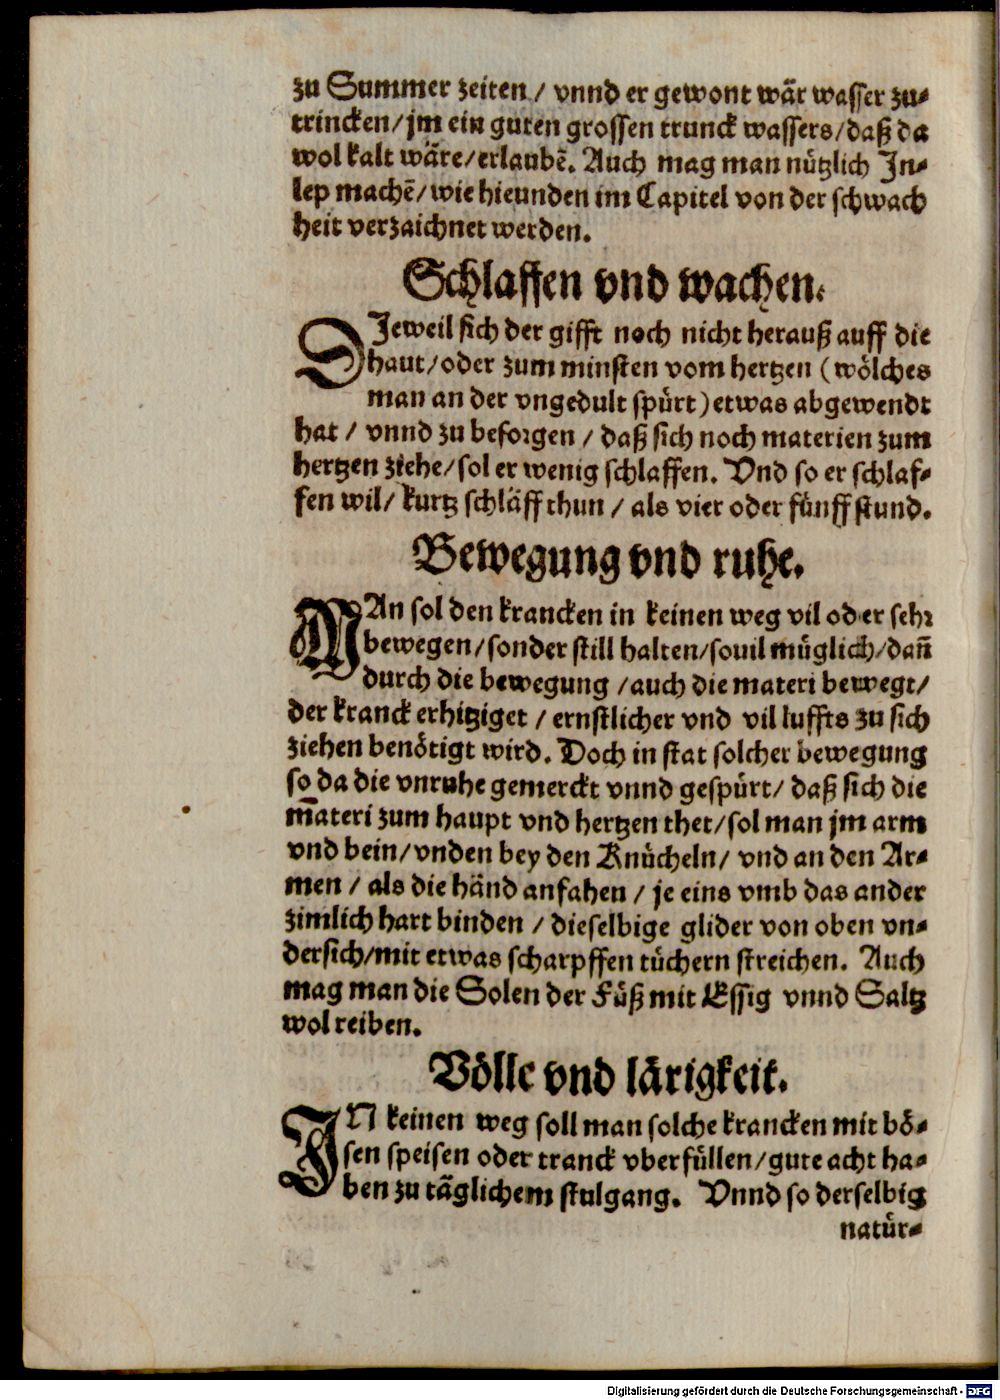 zu Summer zeiten / vnnd er gewont wår wasser zu⸗
trincken/jm ein guten grossen trunck wassers/daß da
wol kalt wåre/erlaubẽ. Auch mag man nützlich Ju⸗
lep machẽ/wie hieunden im Capitel von der schwach
heit verzaichnet werden.
Schlaffen vnd wachen.
DJeweil sich der gifft noch nicht herauß auff die
haut/oder zum minsten vom hertzen (wölches
man an der vngedult spürt) etwas abgewendt
hat / vnnd zu besorgen / daß sich noch materien zum
hertzen ziehe/sol er wenig schlaffen. Vnd so er schlaf⸗
fen wil/ kurtz schläff thun / als vier oder fünff stund.
Bewegung vnd ruhe.
MAn sol den krancken in keinen weg vil oder sehr
bewegen/sonder still halten/souil müglich/dañ
durch die bewegung /auch die materi bewegt/
der kranck erhitziget / ernstlicher vnd vil luffts zu sich
ziehen benötigt wird. Doch in stat solcher bewegung
so da die vnruhe gemerckt vnnd gespürt/ daß sich die
materi zum haupt vnd hertzen thet/sol man jm arm
vnd bein/vnden bey den Knücheln/ vnd an den Ar⸗
men / als die händ anfahen / je eins vmb das ander
zimlich hart binden / dieselbige glider von oben vn⸗
dersich/mit etwas scharpffen tüchern streichen. Auch
mag man die Solen der Füß mit Essig vnnd Saltz
wol reiben.
Völle vnd lärigkeit.
JN keinen weg soll man solche krancken mit bö⸗
sen speisen oder tranck vberfüllen/gute acht ha⸗
ben zu täglichem stulgang. Vnnd so derselbig
natür⸗
Digitalisierung gefördert durch die Deutsche Forschungsgemeinschaft - DFG